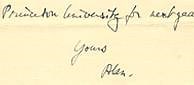 Princeton University for next yea
Yours
Alan.